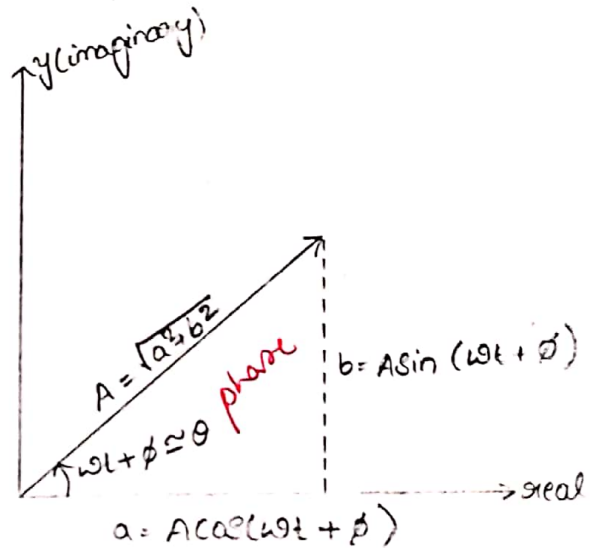 y(imaginary)
A = √a²+b²
phase
b = A sin (ωt + φ)
ωt + φ ≃ θ
real
a = A cos(ωt + φ)